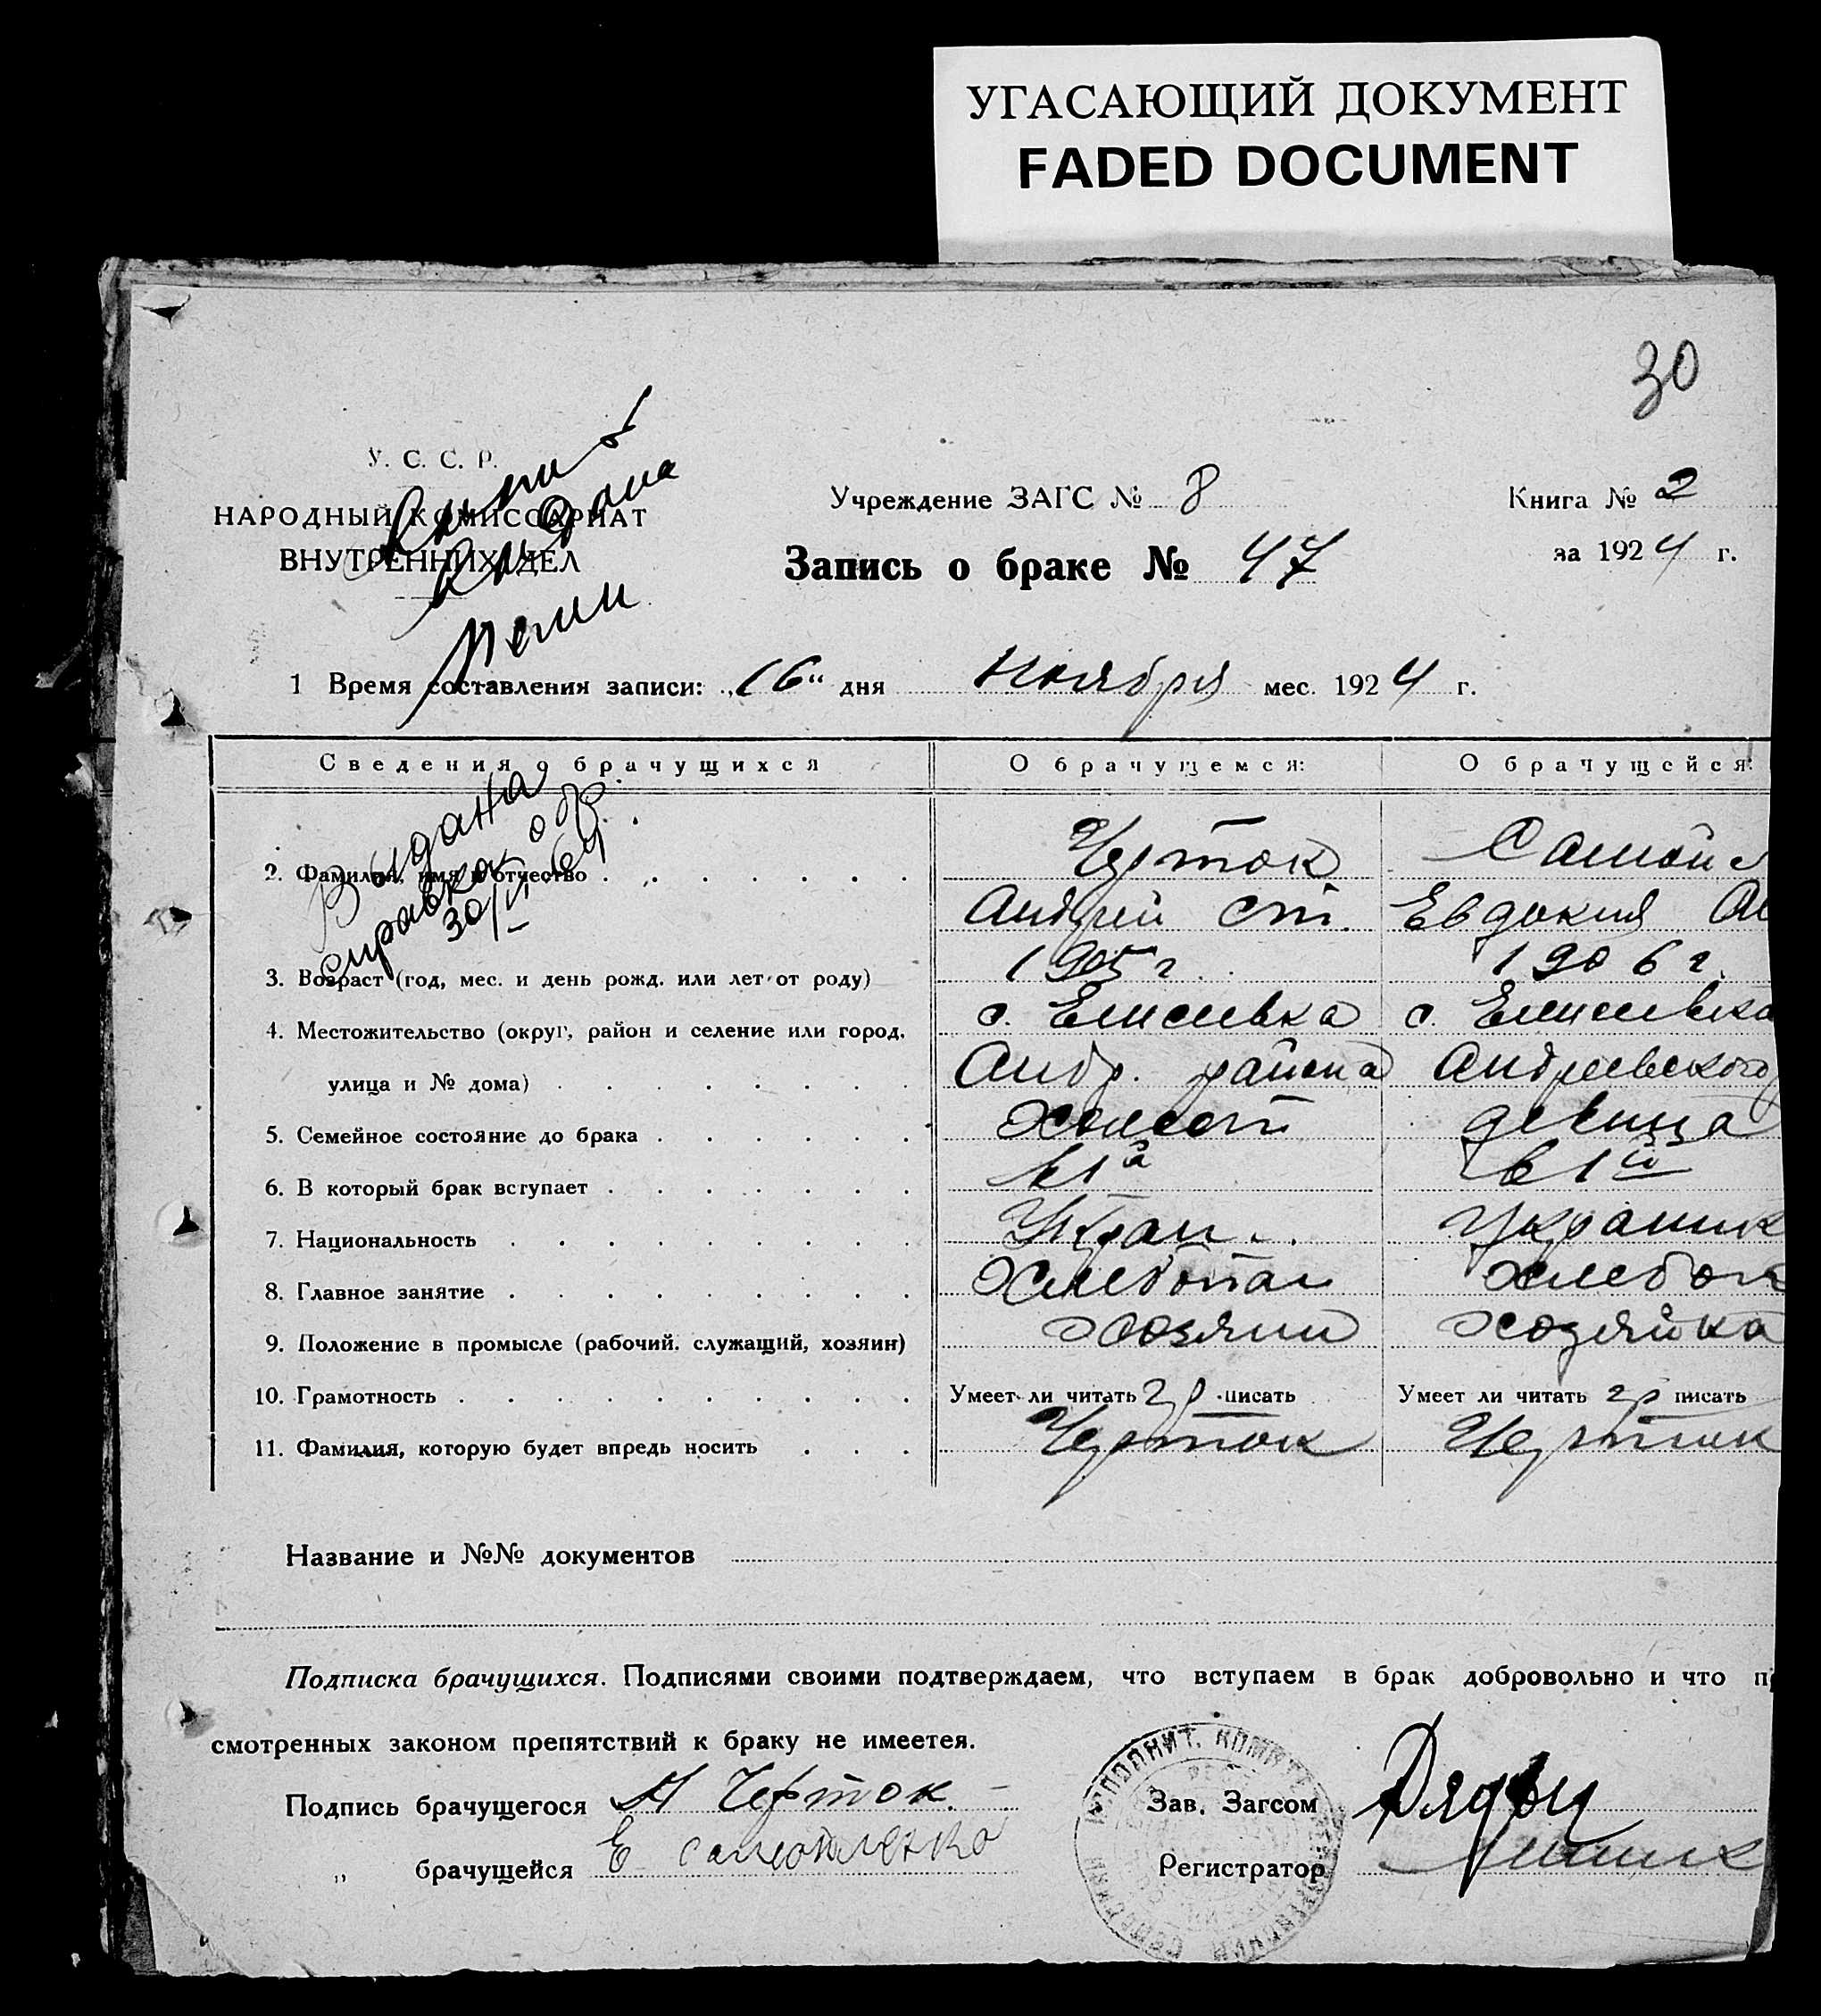 УГАСАЮЩИЙ ДОКУМЕНТ
FADED DOCUMENT
30
У. С. С. Р.
НАРОДНЫЙ КОМИССАРИАТ
ВНУТРЕННИХ ДЕЛ
Учреждение ЗАГС № 8
Книга № 2
за 1924 г.
Запись о браке № 47
1 Время составления записи: „16" дня ноября мес. 1924 г.
Сведения о брачущихся О брачущемся: О брачущейся:
Выдана
справка о бр.
30/VI 64
2. Фамилия, имя и отчество Черток Самойл
Андрей Ст. Евдокия
3. Возраст (год, мес. и день рожд. или лет от роду) 1905 г. 1906 г.
4. Местожительство (округ, район и селение или город, с. Елисеевка с. Елисеевка
улица и № дома) Андр. района Андреевского
5. Семейное состояние до брака холост девица
6. В который брак вступает в 1й в 1й
7. Национальность Украи. Украинк
8. Главное занятие Хлебопаш хлебоп
9. Положение в промысле (рабочий. служащий, хозяин) хозяин хозяйка
10. Грамотность Умеет ли читать гр писать Умеет ли читать гр писать
11. Фамилия, которую будет впредь носить Черток Черток
Название и №№ документов
Подписка брачущихся. Подписями своими подтверждаем, что вступаем в брак добровольно и что п
смотренных законом препятствий к браку не имеетея.
Подпись брачущегося А Черток.
„ брачущейся Е самойленко
Зав. Загсом
Регистратор
ИСПОЛНИТ. КОМИТЕТ